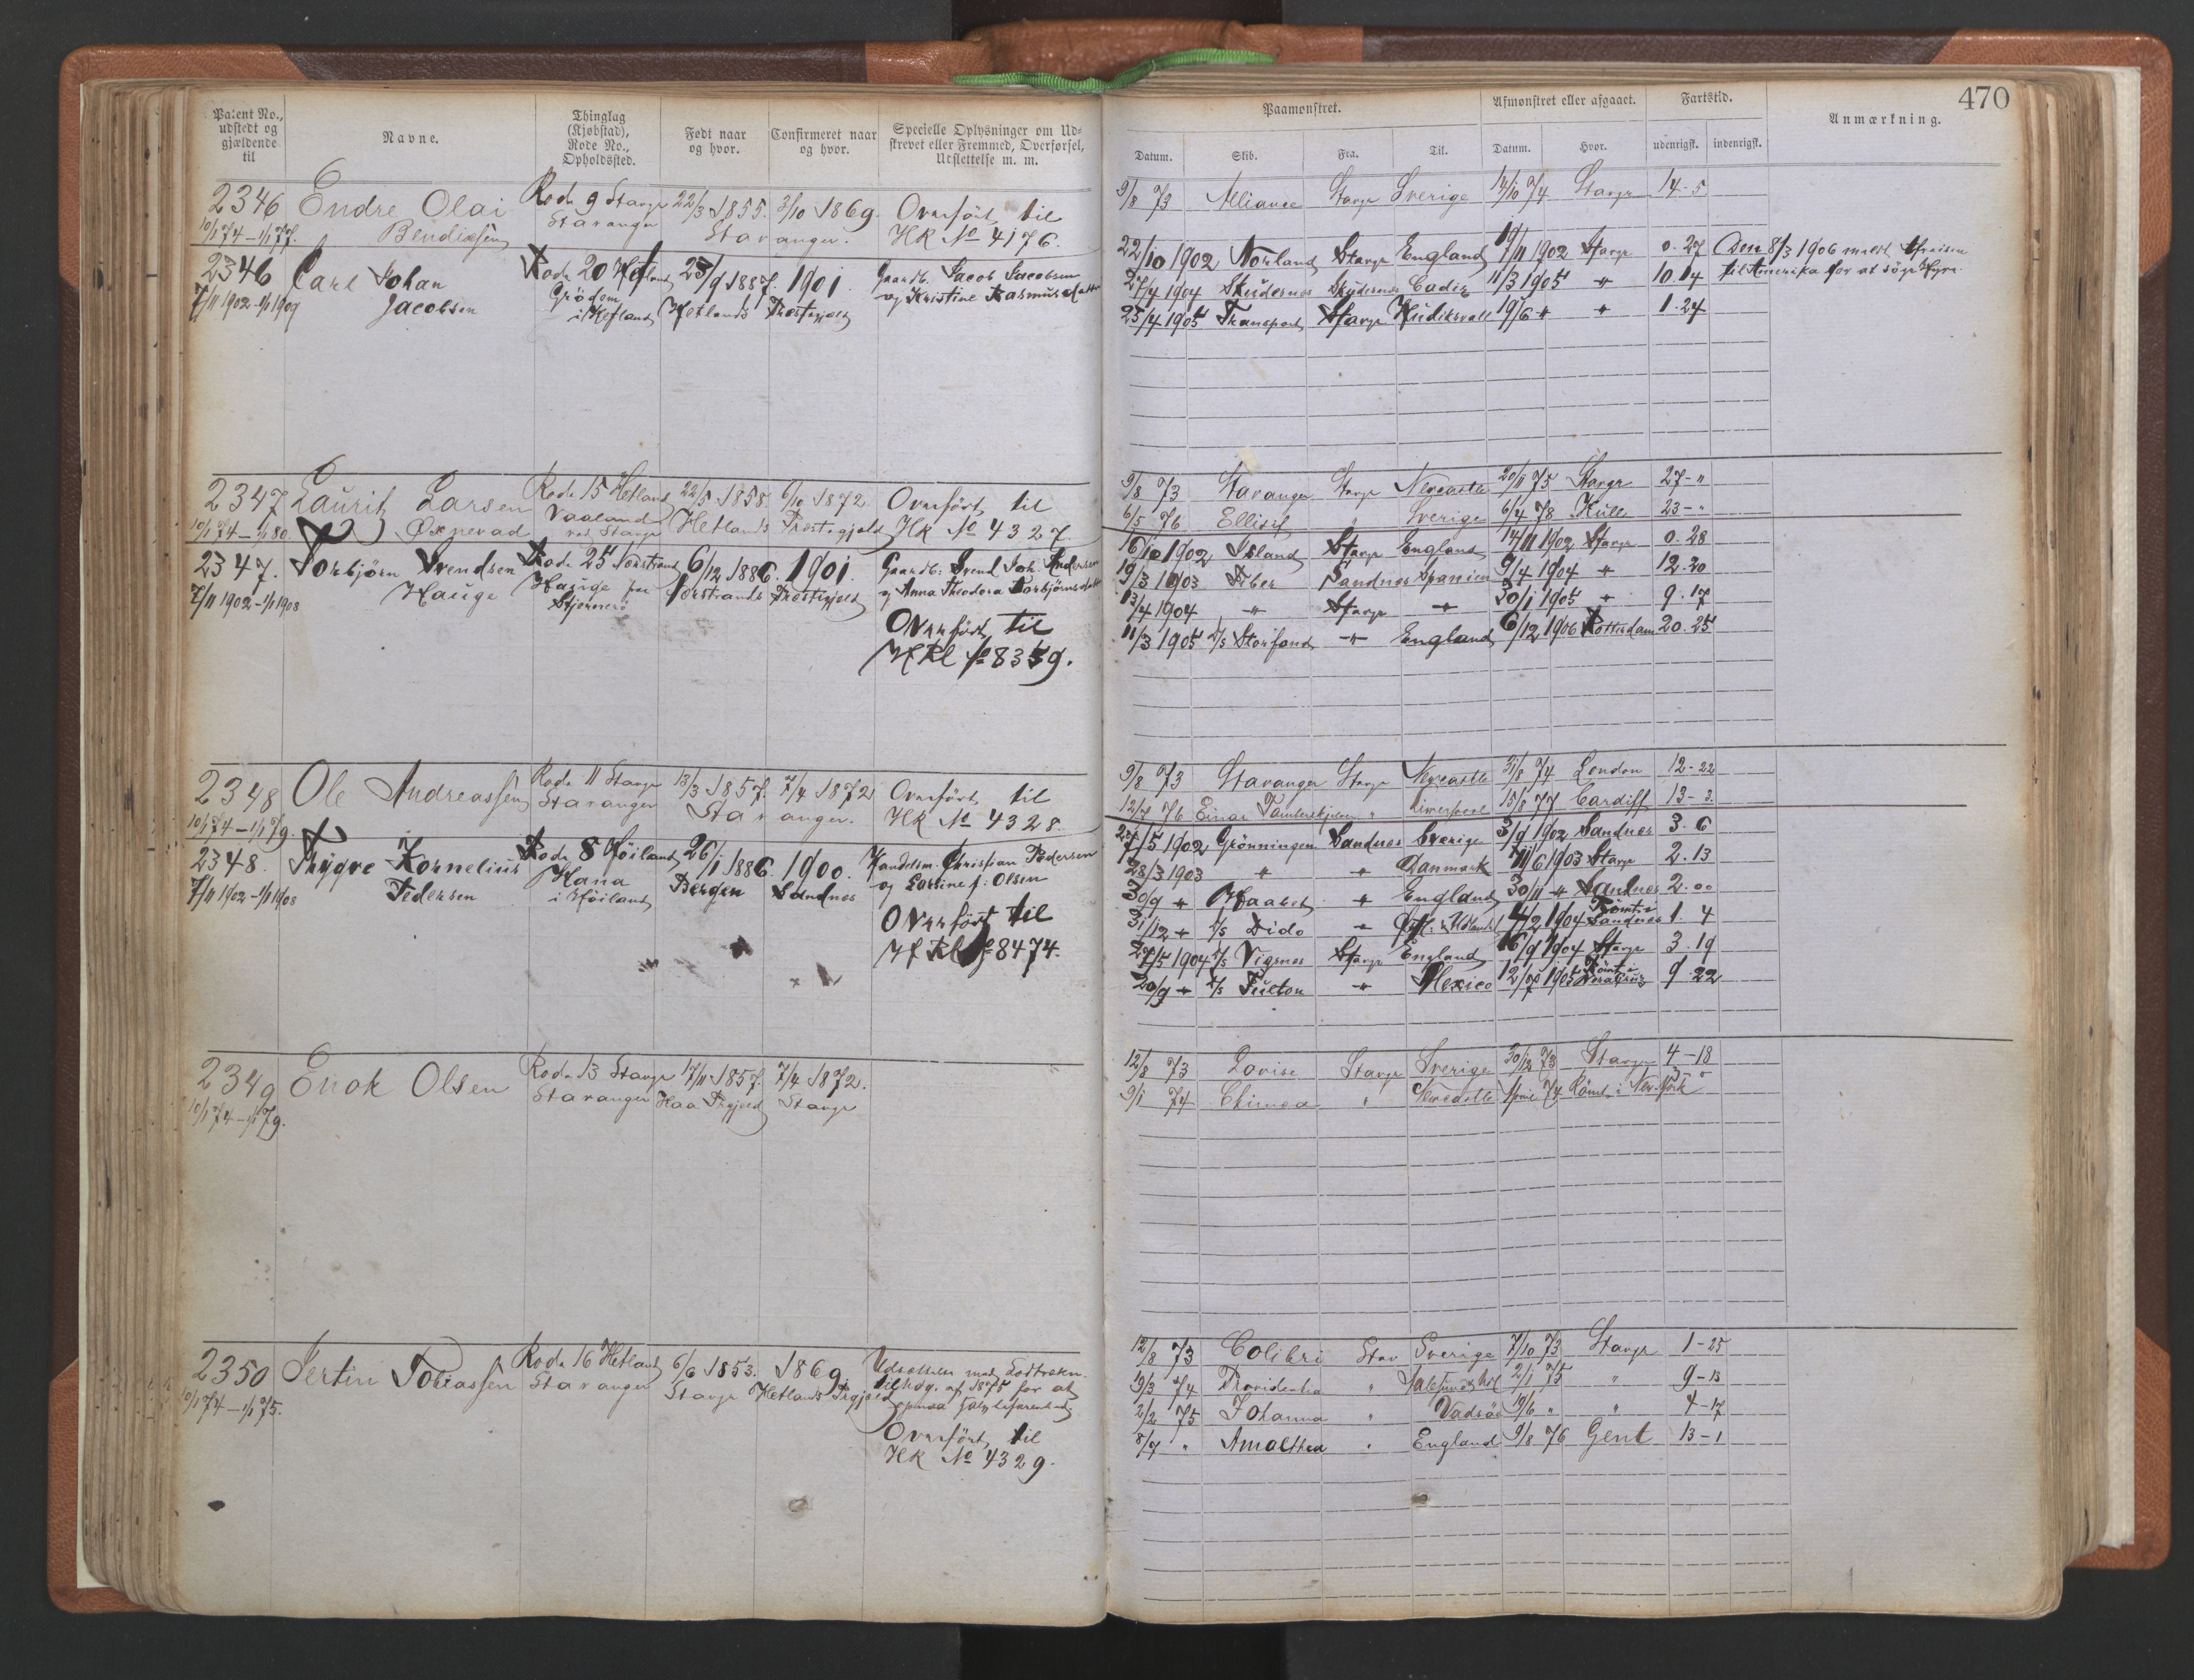 Patent No., udstedt og gjældende til
Navne.
Thinglag (Kjøbstad), Rode No., Opholdssted.
Født naar og hvor.
Confirmeret naar og hvor.
Specielle Oplysninger om Udskrevet eller Fremmed, Overførsel, Udslettelse m. m.
Paamønstret.
Afmønstret eller afgaaet.
Fartstid.
Anmærkning.
470
Datum. Skib. Fra. Til. Datum. Hvor. udenrigsk. indenrigsk.
2346 Endre Olai Rode 9 Stavgr 22/3 1855. 3/10 1869. Overført til
10/1 74 – 1/1 77. Bendixsen Stavanger Stavanger. HK No 4176.
9/8 73 Alliance Stavgr Sverige 14/10 74 Stavgr 14-5
2346 Carl Johan Rode 20 Hetland 23/9 1887. 1901. Gaardb. Jacob Jacobsen
7/11 1902-1/1 1909 Jacobsen Grödem i Hetland Hetlands Præstegjeld og Kristine Rasmusdatter
22/10 1902 Norland Stavgr England 19/11 1902 Stavgr 0.27 Den 8/3 1906 meldt Afreisen
27/4 1904 Skudesnes Skudesnes Cadiz 11/3 1905 " 10.14 til Amerika for at söge Hyre.
25/4 1905 Transport Stavgr Hudiksvall 19/6 " " 1.24
2347 Laurits Larsen Rode 15 Hetland 22/5 1858. 6/10 1872. Overført til
10/1 74 – 1/1 80. Oxnevad Vaaland ved Stavgr Hetlands Præstegjeld HK No 4327.
9/8 73 Stavanger Stavgr Newcastle 20/11 75 Stavgr 27-"
6/5 76 Ellisif " Sverige 6/4 78 Hull 23-"
2347. Torbjörn Svendsen Rode 25 Nerstrand 6/12 1886. 1901. Gaardb: Svend Joh. Andersen
7/11 1902-1/1 1908 Hauge Hauge Stjernerö Nerstrands Præstegjeld og Anna Theodora Torbjörnsdatter
Overfört til
HRl No 8359.
16/10 1902 Island Stavgr England 14/11 1902 Stavgr 0.28
19/3 1903 Tiber Sandnes Spanien 9/4 1904 " 12.20
13/4 1904 " Stavgr " 30/1 1905 " 9.17
11/3 1905 D/s Storfond " England 6/12 1906 Rotterdam 20.25
2348 Ole Andreassen Rode 11 Stavgr 13/3 1857. 7/4 1872 Overført til
10/1 74 – 1/1 79. Stavanger Stavanger. HK No 4328.
9/8 73 Stavanger Stavgr Newcastle 31/8 74 London 12-22
12/7 76 Einar Tamberskjelver " Liverpool 15/8 77 Cardiff 13-3.
2348. Trygve Kornelius Rode 8 Höiland 26/1 1886. 1900. Handelsm. Christian Pedersen
7/11 1902-1/1 1908 Pedersen Hana i Höiland Bergen Sandnes og Gorine f: Olsen
Overfört til
HRl No 8474.
27/5 1902 Grönningen Sandnes Sverige 3/9 1902 Sandnes 3.6
28/3 1903 " " Danmark 11/6 1903 Stavgr 2.13
30/9 " Haabet " England 30/11 " Sandnes 2.00
31/12 " D/s Dido " 4/2 1904 Römt i Sandnes 1.4
27/5 1904 D/s Vigsnes Stavgr England 16/9 1904 Stavgr 3.19
20/9 " D/s Fulton " Mexico 12/7 1905 Römt i Veracruz 9.22
2349 Enok Olsen Rode 13 Stavgr 17/11 1857. 7/4 1872.
10/1 74 – 1/1 79. Stavanger Haa Prgjeld Stavgr
12/8 73 Lovise Stavgr Sverige 30/12 73 Stavgr 4-18
9/1 74 Chimea " Newcastle April 74 Römt i New-York 3-"
2350 Jertin Tobiassen Rode 16 Hetland 6/6 1853. 1869 i Udsættelse med Lodtrækn.
10/1 74 – 1/1 75. Stavanger Stavgr Hetlands Prgjeld til Udg. af 1875 for at
Overført til
HK No 4329.
12/8 73 Colibri Stav Sverige 7/10 73 Stavgr 1-25
19/3 74 Providentia " 2/1 75 " 9-13
2/2 75 Johanna " Vadsöe 19/6 " " 4-17
8/7 " Amalthea " England 9/8 76 Gent 13-1